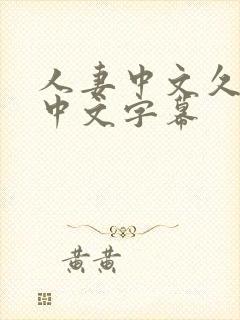 人妻中文久
中文字幕
黄黄